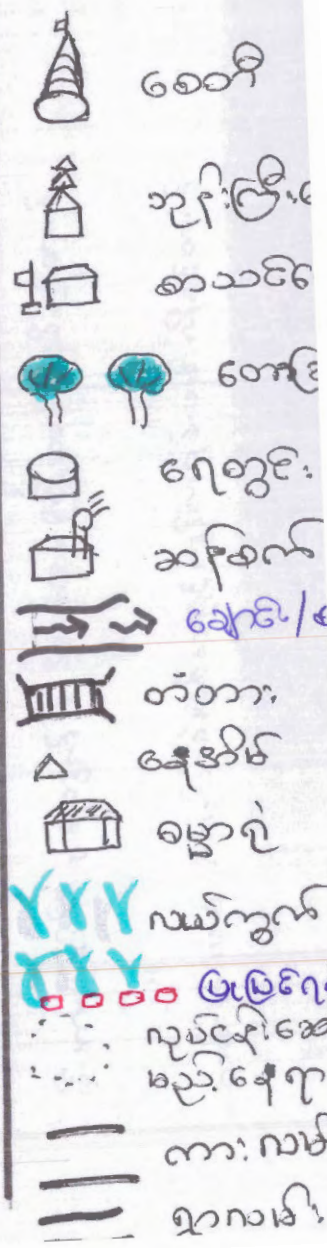 စေတီ
ဘုန်းကြီး
စာသင်
တော
ရေတွင်း
ဆန်စက်
ချောင်း/
တံတား
နေအိမ်
ဓမ္မာရုံ
လယ်ကွက်
ပြုပြင်ရ
လုပ်ငန်းဆော
မည့်နေရာ
ကားလမ်း
ရွာလမ်း